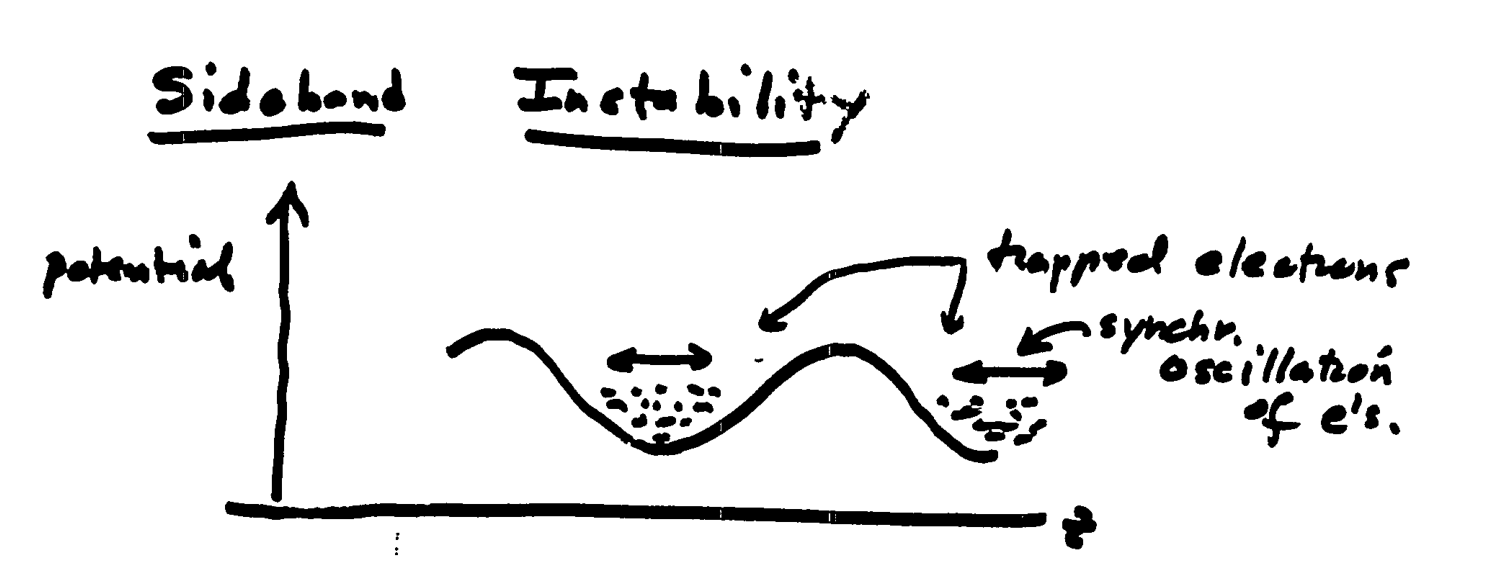 Sideband Instability
potential
trapped electrons
synchr.
oscillation
of e's.
z